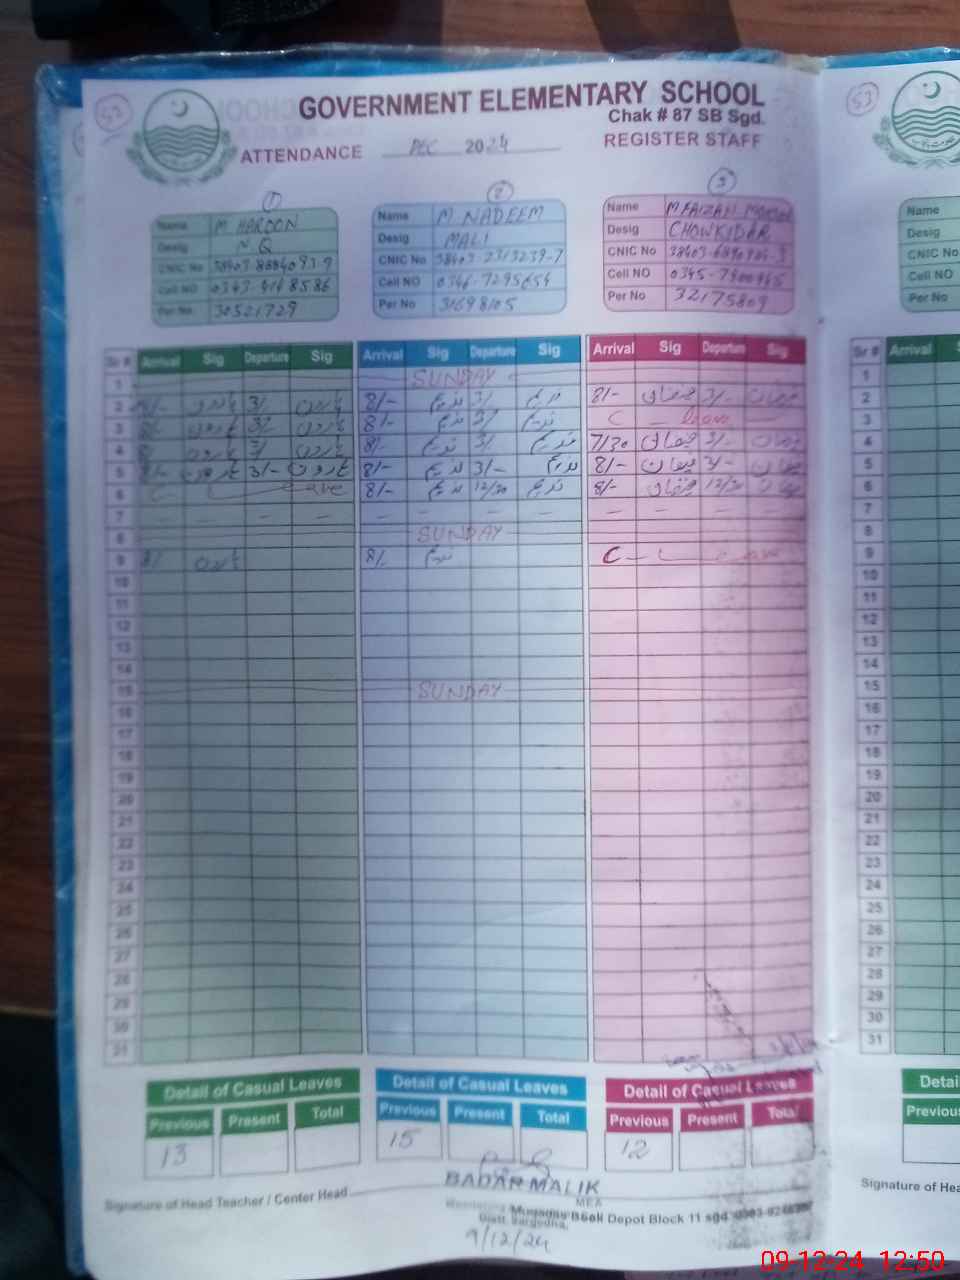 53 GOVERNMENT ELEMENTARY SCHOOL 53
Chak # 87 SB Sgd.
ATTENDANCE DEC 2024 REGISTER STAFF
1 2 3
Name M HAROON Name M NADEEM Name M FAIZAN Name
Desig N.Q Desig MALI Desig CHOWKIDAR Desig
CNIC No CNIC No 38403-2313239-7 CNIC No CNIC No
Cell NO 0343-4168586 Cell NO 0346-7295654 Cell NO Cell NO
Per No 30521729 Per No 31698105 Per No 32175809 Per No
Sr # Arrival Sig Departure Sig Arrival Sig Departure Sig Arrival Sig Departure Sig Sr # Arrival
1 SUNDAY 1
2 8/- ہارون 3/- ہارون 8/- ندیم 3/- ندیم 8/- فیضان 3/- فیضان 2
3 8/- ہارون 3/- ہارون 8/- ندیم 3/ ندیم C leave 3
4 8/ ہارون 3/ ہارون 8/- ندیم 3/- ندیم 7/30 فیضان 3/- فیضان 4
5 8/- ہارون 3/- ہارون 8/- ندیم 3/- ندیم 8/- فیضان 3/- فیضان 5
6 C Leave 8/- ندیم 12/30 ندیم 8/- فیضان 12/30 فیضان 6
7 – – – – – – – – – – – – 7
8 SUNDAY 8
9 8/ ہارون 8/- ندیم C – Leave 9
10 10
11 11
12 12
13 13
14 14
15 SUNDAY 15
16 16
17 17
18 18
19 19
20 20
21 21
22 22
23 23
24 24
25 25
26 26
27 27
28 28
29 29
30 30
31 31
Detail of Casual Leaves Detail of Casual Leaves Detail of Casual Leaves
Previous Present Total Previous Present Total Previous Present Total Previous
13 15 12
Signature of Head Teacher / Center Head
BADAR MALIK
MEA
Depot Block 11 sgd.
Distt. Sargodha.
9/12/24
09-12-24 12:50